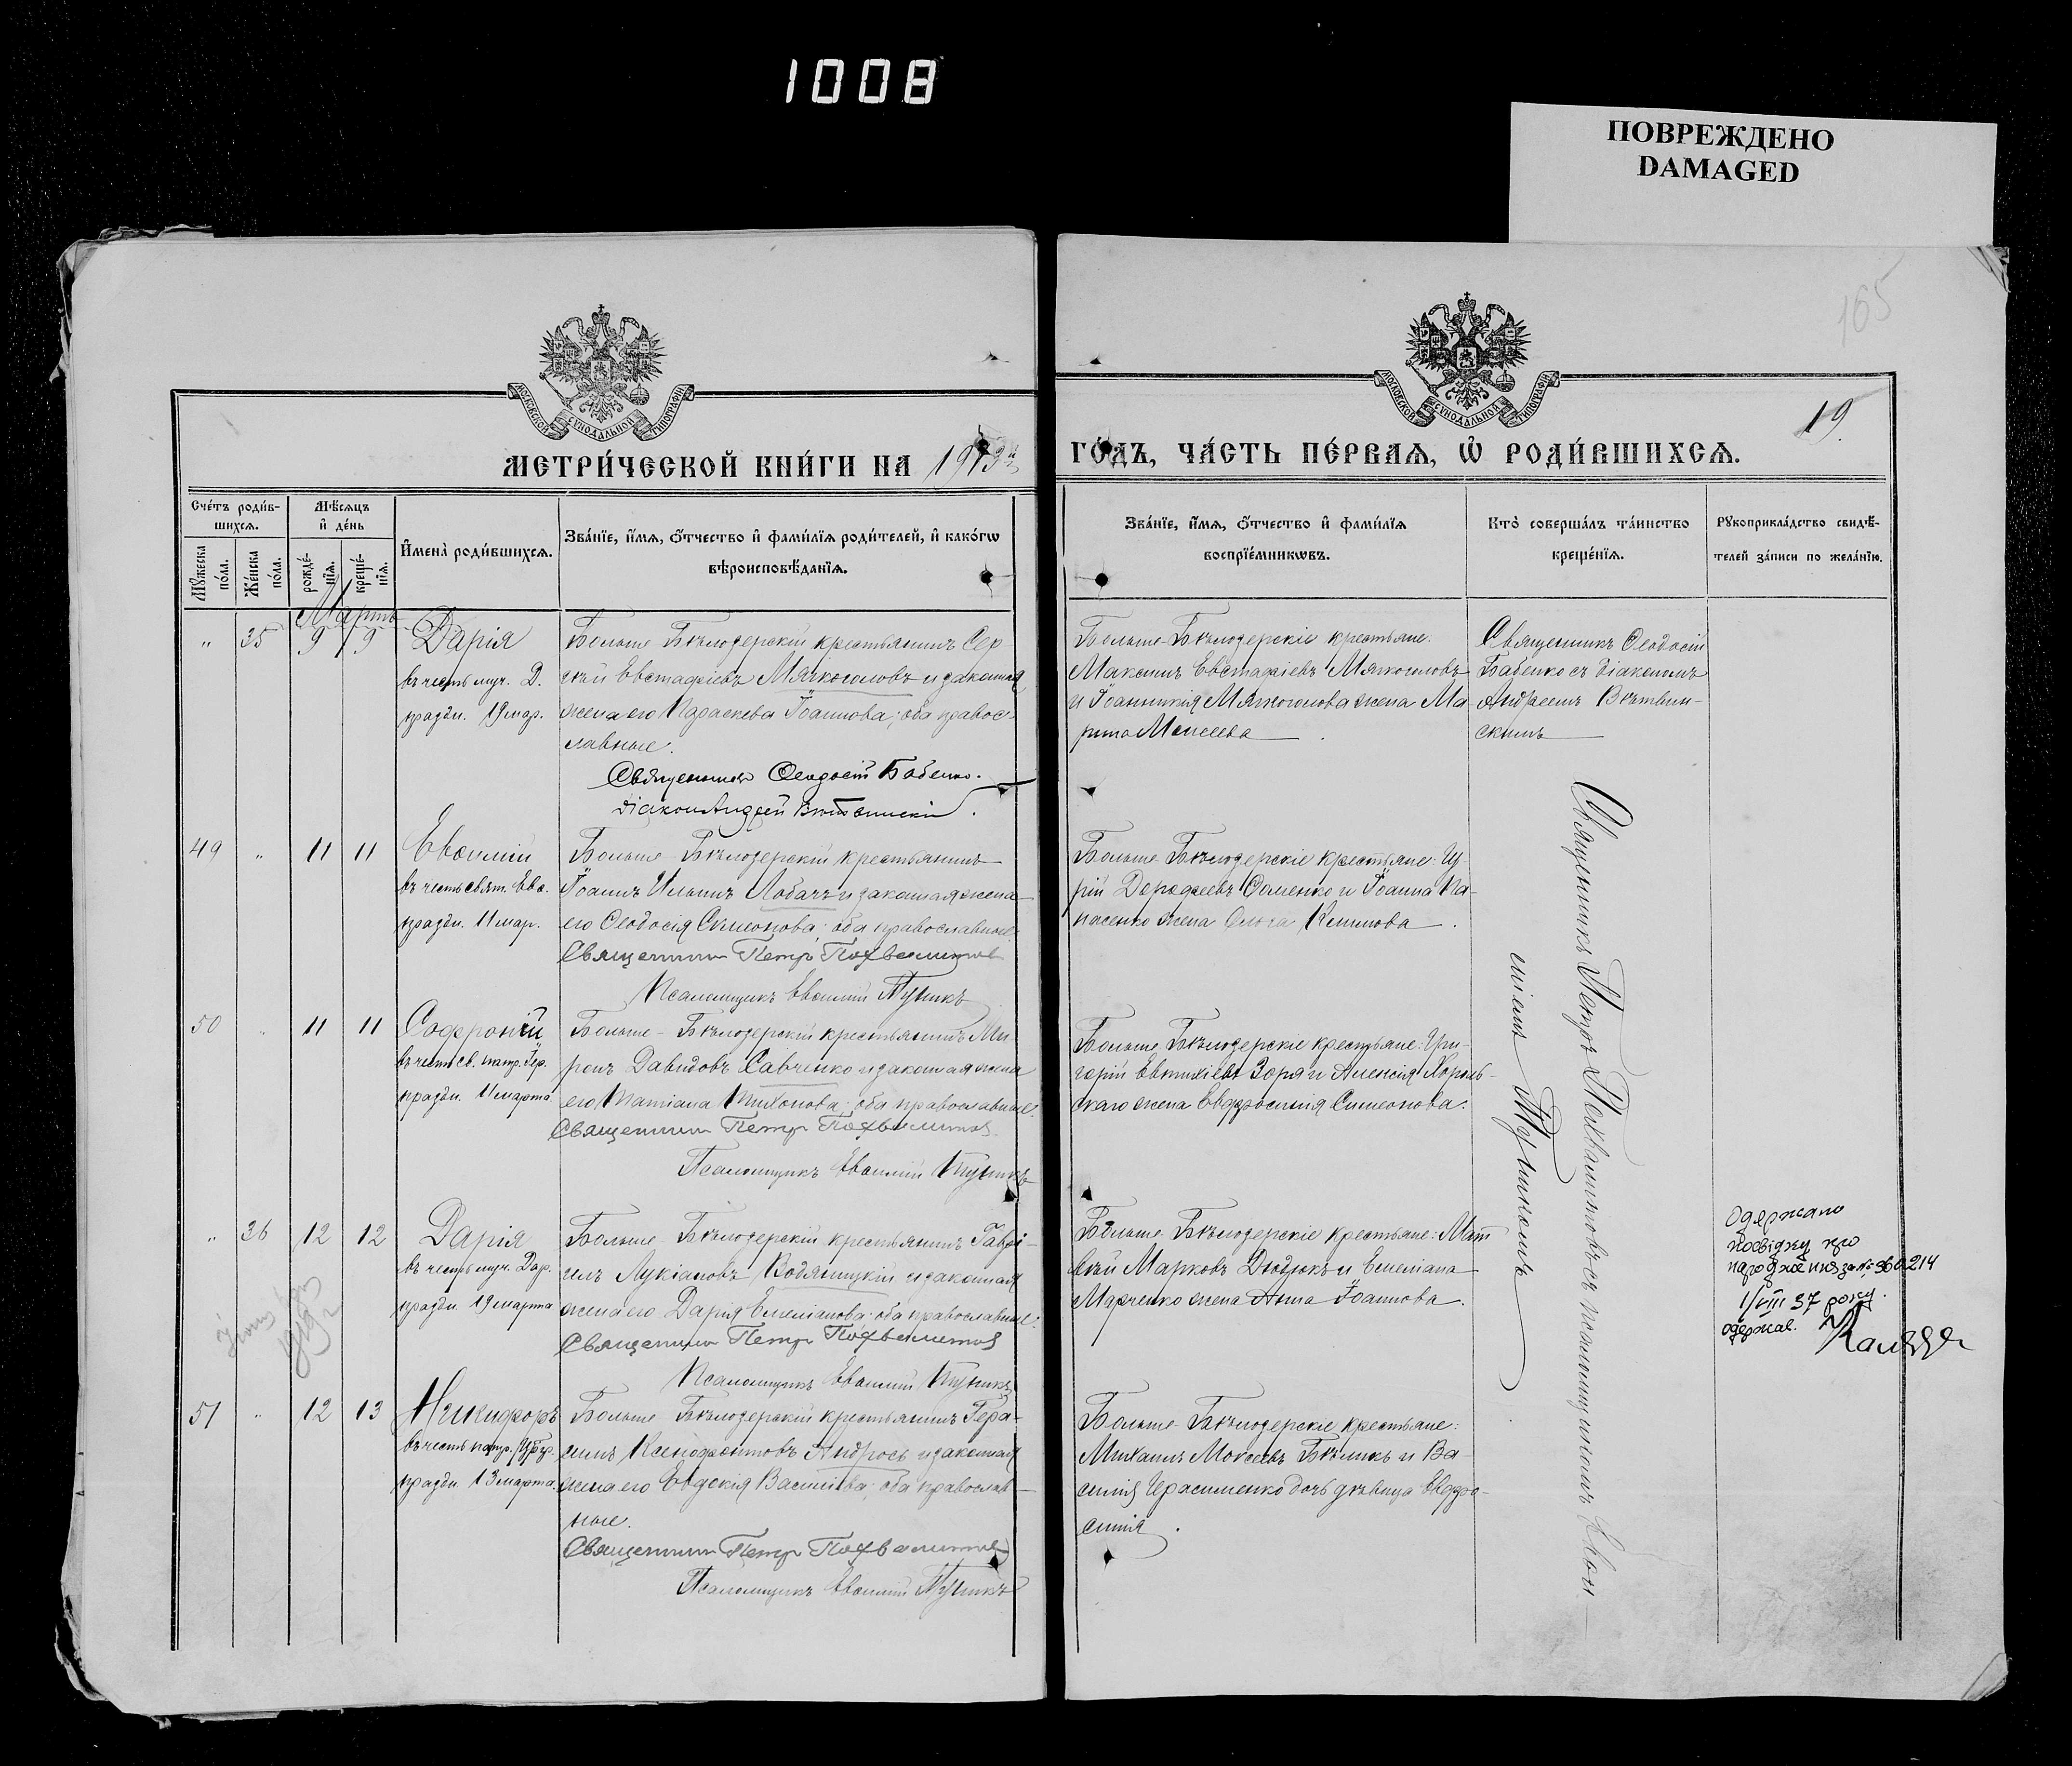 1008
ПОВРЕЖДЕНО
DAMAGED
165
19.
МОСКОВСКОЙ СѴНОДАЛЬНОЙ ТИПОГРАФІИ
МОСКОВСКОЙ СѴНОДАЛЬНОЙ ТИПОГРАФІИ
МЕТРИ́ЧЕСКОЙ КНИ́ГИ НА 1913й
ГО́ДЪ, ЧА́СТЬ ПЕ́РВАѦ, Ѡ҆ РОДИ́ВШИХСѦ.
Сче́тъ роди́в-
шихсѧ.
Мꙋ́жеска
по́ла.
Же́нска
по́ла.
Мѣ́сѧцъ
и҆ де́нь
рожде́-
нїѧ.
креще́-
нїѧ.
И҆мена̀ роди́вшихсѧ.
Зва́нїе, и҆́мѧ, ѻ҆́тчество и҆ фами́лїѧ роди́телей, и҆ како́гѡ
вѣроисповѣ́данїѧ.
Зва́нїе, и҆́мѧ, ѻ҆́тчество и҆ фами́лїѧ
воспрїе́мникѡвъ.
Кто̀ соверша́лъ та́инство
креще́нїѧ.
Рꙋкоприкла́дство свидѣ́-
телей за́писи по жела́нїю.
Мартъ
" 35 9 9
Дарія
въ честь муч. Д.
праздн. 19 мар.
Больше-Бѣлозерскій крестьянинъ Сер-
гѣй Евстафіевъ Мягкоголовъ и законная
жена его Параскева Іоаннова; оба правос-
лавные.
Священникъ Ѳеодосій Бабенко.
Діаконъ Андрей
Больше-Бѣлозерскіе крестьяне:
Максимъ Евстафіевъ Мягкоголовъ
и Іоанникія Мягкоголова жена Ма-
рина Моисеева
Священникъ Ѳеодосій
Бабенко съ діакономъ
Андреемъ
скимъ
49 " 11 11
Евѳимій
въ честь свят. Евѳ.
праздн. 11 мар.
Больше-Бѣлозерскій крестьянинъ
Іоаннъ Ильинъ Лобачъ и законная жена
его Ѳеодосія Симеонова; оба православные.
Священникъ Петръ Похвалитовъ
Псаломщикъ Евѳимій Тупикъ
Больше-Бѣлозерскіе крестьяне:
Ѳоменко и Іоанна Па-
насенко жена
50 " 11 11
Софроній
въ честь св. патр. Іер.
праздн. 11 марта
Больше-Бѣлозерскій крестьянинъ Ми-
ронъ Давидовъ Савченко и законная жена
его Татіана Тихонова; оба православные.
Священникъ Петръ Похвалитовъ
Псаломщикъ Евѳимій Тупикъ
Больше-Бѣлозерскіе крестьяне: Гри-
горій Евтихіевъ Зоря и Алексія Хороль-
скаго жена Евфросинія Симеонова.
" 36 12 12
Дарія
въ честь муч. Дар.
праздн. 19 марта
Больше-Бѣлозерскій крестьянинъ Гаврі-
илъ Лукіановъ Водяницкій и законная
жена его Дарія Емеліанова; оба православные.
Священникъ Петръ Похвалитовъ
Псаломщикъ Евѳимій Тупикъ
Больше-Бѣлозерскіе крестьяне: Мат-
вѣй Марковъ Дюдюкъ и Емеліана
Марченко жена Анна Іоаннова.
Одержано
посвідку про
народження за № 360214
1/VIII 37 року.
одержав.
51 " 12 13
Никифоръ
въ честь патр. Цргр.
праздн. 13 марта.
Больше-Бѣлозерскій крестьянинъ Гера-
симъ Ксенофонтовъ Андросъ и законная
жена его Евдокія Василіева; оба православ-
ные.
Священникъ Петръ Похвалитовъ
Псаломщикъ Евѳимій Тупикъ
Больше-Бѣлозерскіе крестьяне:
Михаилъ Моисеевъ Бѣликъ и Ва-
силія Герасименко дочь дѣвица Евфро-
синія.
Священникъ Петръ Похвалитовъ съ псаломщикомъ Евѳи-
міемъ Тупикомъ